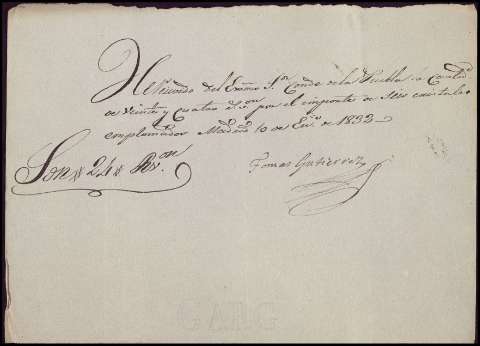 He recivido del Exmo Sor Conde de la Puebla la Cantidd
de Veinte y Cuatro rs on por el importe de Seis
emplomador Madrid 10 de Eno de 1832
Son # 24 # Rs. on
Tomas Gutierrez